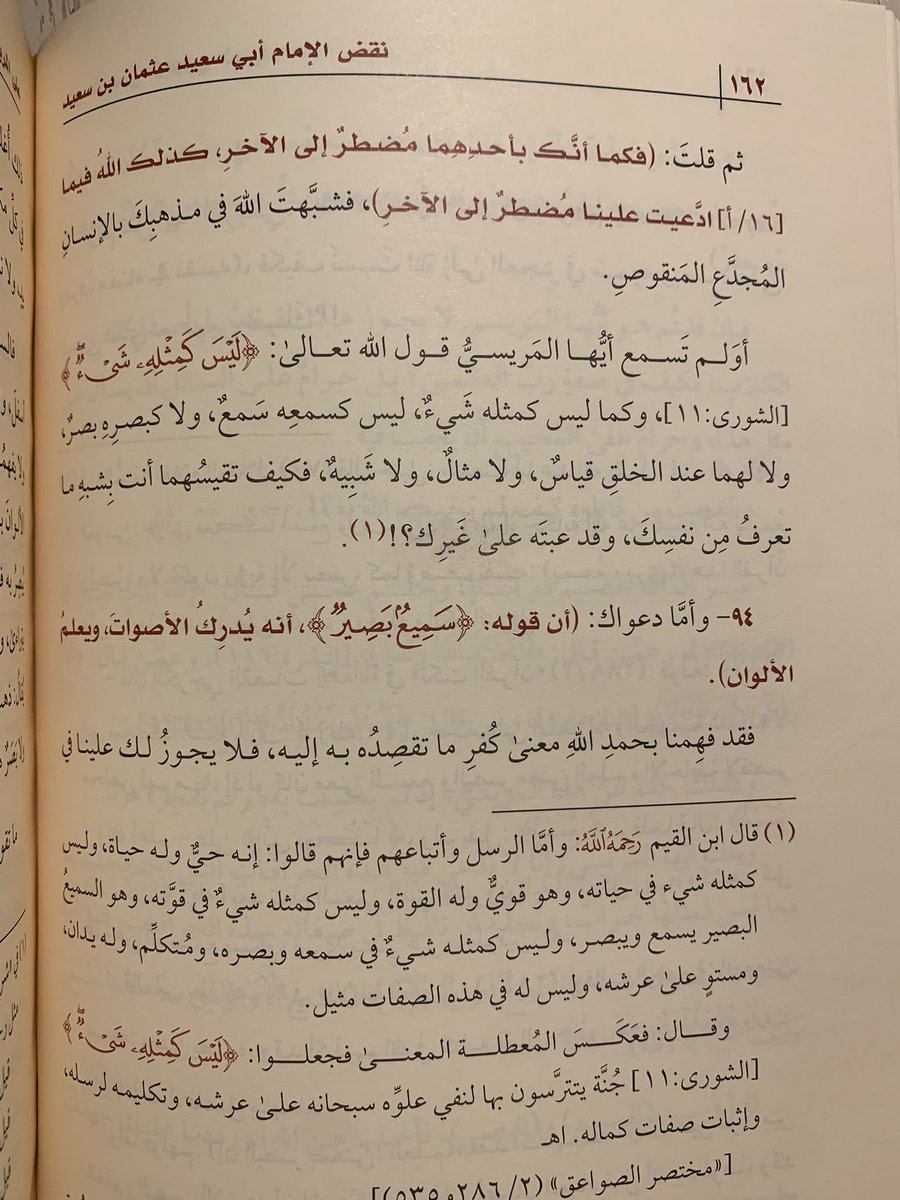 نقض الإمام أبي سعيد عثمان بن سعيد
١٦٢
ثم قلتَ: (فكما أنَّك بأحدِهِما مُضطرٌ إلى الآخرِ، كذلك اللهُ فيما
[١٦/ أ] ادَّعيت علينا مُضطرٌ إلى الآخرِ)، فشبَّهتَ اللهَ في مذهبِكَ بالإنسانِ
المُجدَّعِ المَنقوصِ.
أوَلم تَسمع أيُّها المَريسيُّ قول الله تعالىٰ: ﴿لَيْسَ كَمِثْلِهِۦ شَىْءٌۖ﴾
[الشورى:١١]، وكما ليس كمثله شَيءٌ، ليس كسمعِه سَمعٌ، ولا كبصرِهِ بصرٌ،
ولا لهما عند الخلقِ قياسٌ، ولا مثالٌ، ولا شَبِيهٌ، فكيف تقيسُهما أنت بِشبهِ ما
تعرفُ مِن نفسِكَ، وقد عبتَه علىٰ غَيرِك؟!(١).
٩٤- وأمَّا دعواك: (أن قوله: ﴿سَمِيعٌۢ بَصِيرٌ﴾، أنه يُدرِكُ الأصواتَ، ويعلمُ
الألوان).
فقد فهِمنا بحمدِ اللهِ معنىٰ كُفرِ ما تقصِدُه به إليه، فلا يجوزُ لك علينا في
(١) قال ابن القيم رَحِمَهُ ٱللَّهُ: وأمَّا الرسل وأتباعهم فإنهم قالوا: إنه حيٌّ وله حياة، وليس
كمثله شيء في حياته، وهو قويٌّ وله القوة، وليس كمثله شيءٌ في قوَّته، وهو السميعُ
البصير يسمع ويبصر، وليس كمثله شيءٌ في سمعه وبصره، ومُتكلِّم، وله يدان،
ومستوٍ علىٰ عرشه، وليس له في هذه الصفات مثيل.
وقال: فعَكَسَ المُعطلة المعنىٰ فجعلوا: ﴿لَيْسَ كَمِثْلِهِۦ شَىْءٌۖ﴾
[الشورى:١١] جُنَّة يتترَّسون بها لنفي علوِّه سبحانه علىٰ عرشه، وتكليمه لرسله،
وإثبات صفات كماله. اهـ
[«مختصر الصواعق» (٢/ ٢٨٦ و٥٣٥)]